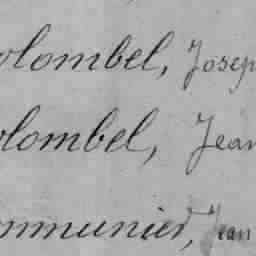 olombel, Josep
olombel, Jean
ommunier, Jean